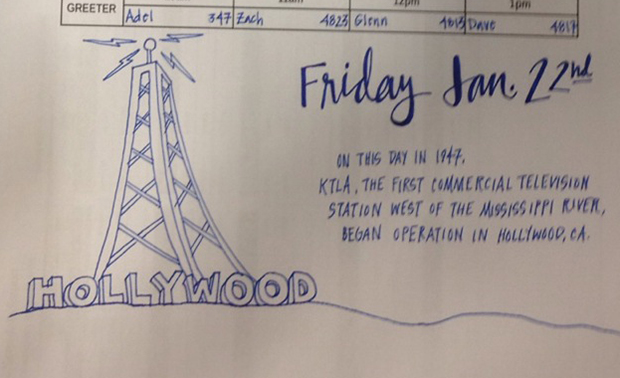 GREETER Adel 347 Zach 4823 Glenn 4813 Dave 4817
12pm 1pm
Friday Jan. 22nd
ON THIS DAY IN 1947,
KTLA, THE FIRST COMMERCIAL TELEVISION
STATION WEST OF THE MISSISSIPPI RIVER,
BEGAN OPERATION IN HOLLYWOOD, CA.
HOLLYWOOD